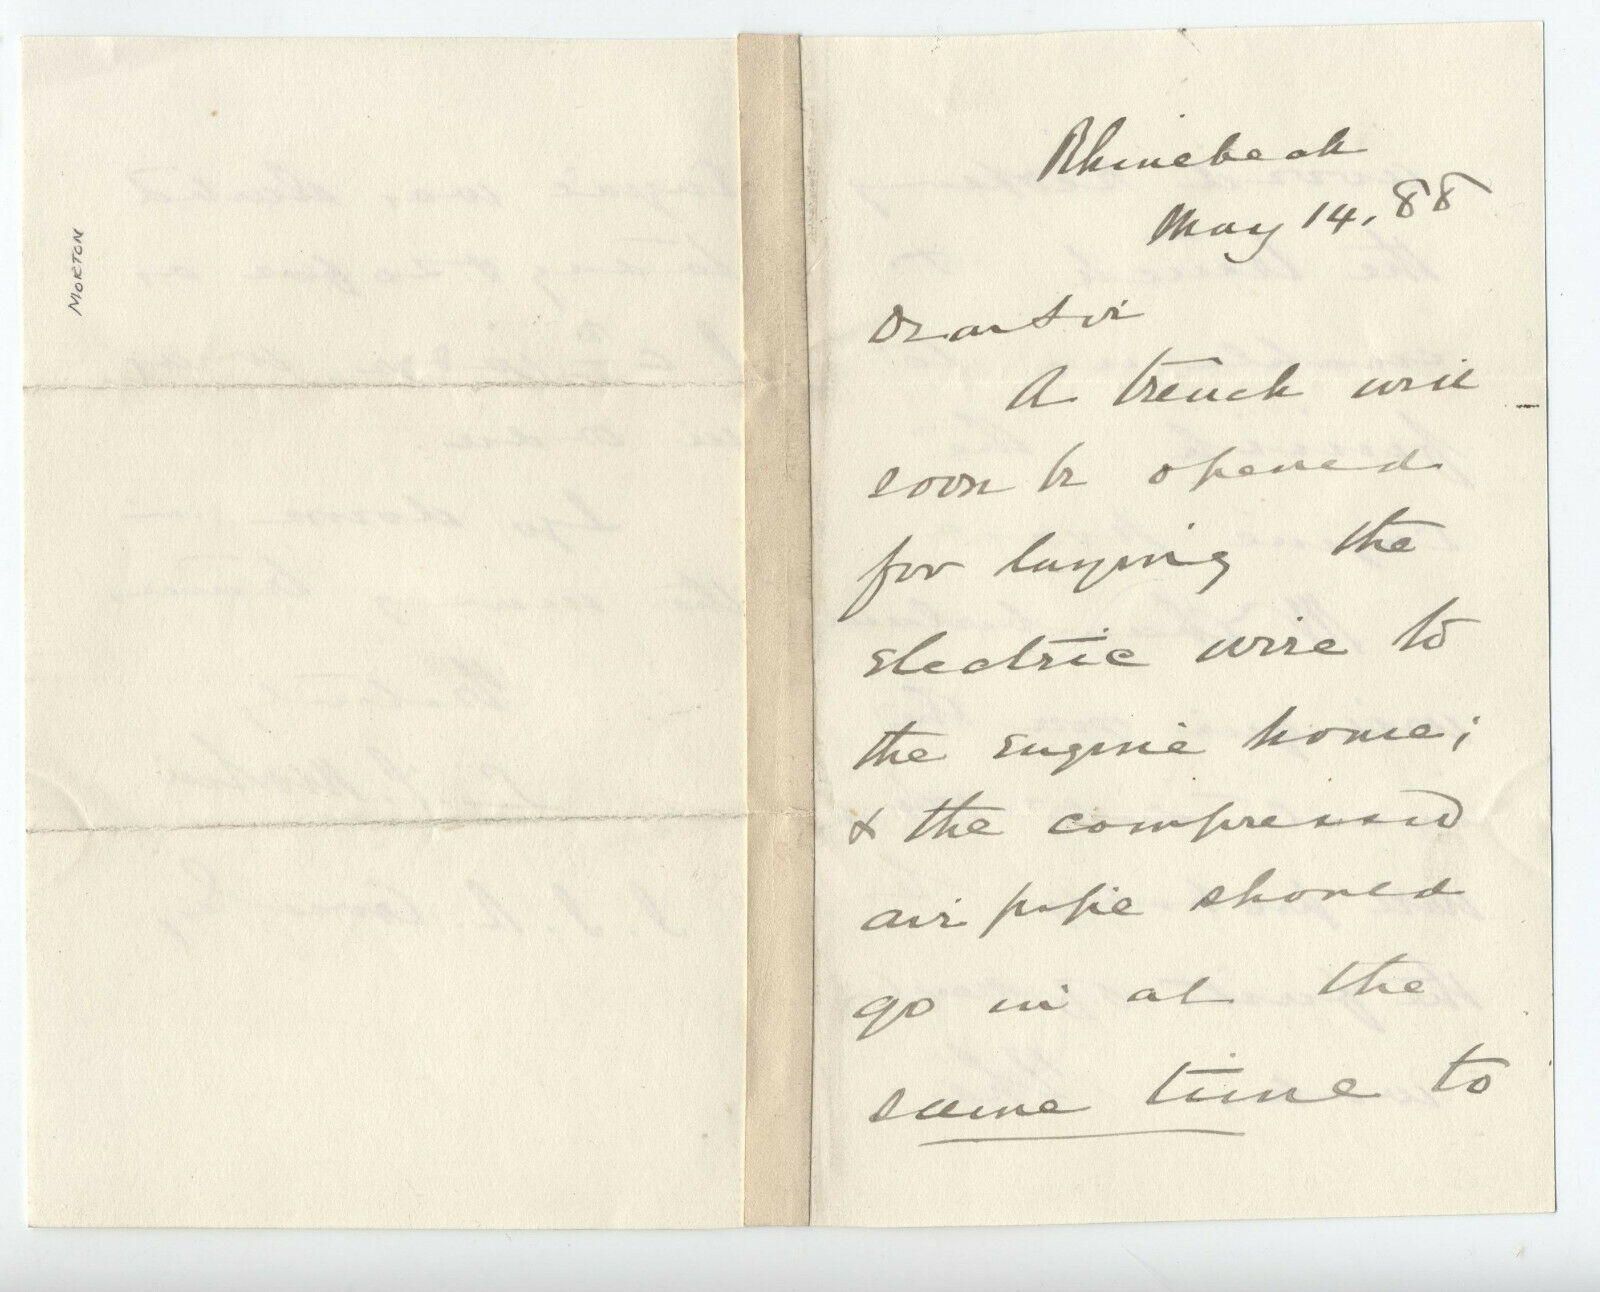 MORTON
Rhinebeck
May 14, 88
Dear Sir
A trench will
soon be opened
for laying the
Electric wire to
the Engine house;
& the compressed
air pipe should
go in at the
same time to